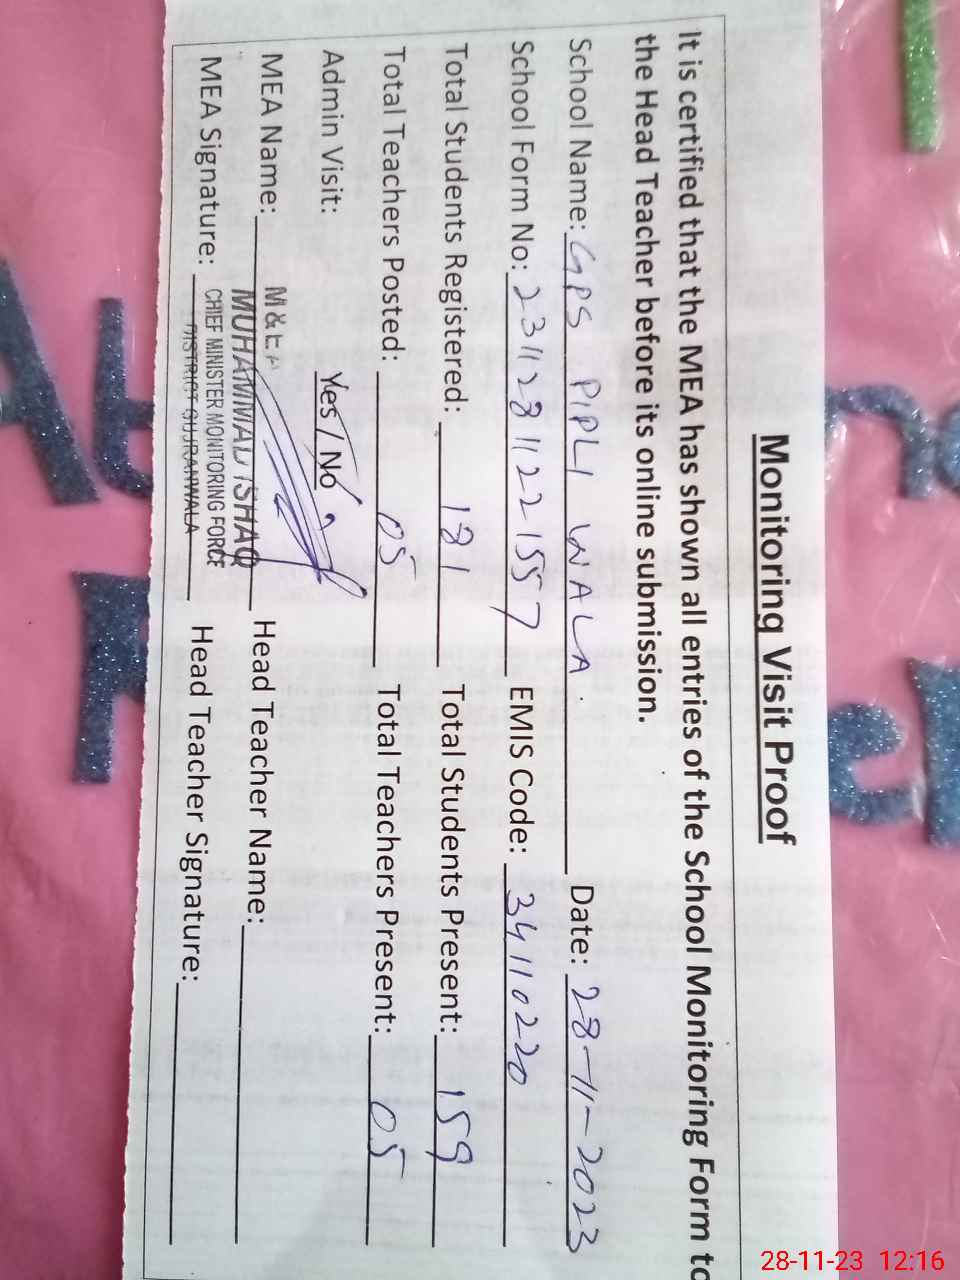 Monitoring Visit Proof
It is certified that the MEA has shown all entries of the School Monitoring Form to
the Head Teacher before its online submission.
School Name: GPS PIPLI WALA Date: 28-11-2023
School Form No: 2311281122 1557 EMIS Code: 34110220
Total Students Registered: Total Students Present: 159
Total Teachers Posted: 05 Total Teachers Present: 05
Admin Visit: Yes / No
M & EA
MEA Name: MUHAMMAD ISHAQ Head Teacher Name:
CHIEF MINISTER MONITORING FORCE
MEA Signature: DISTRICT GUJRANWALA Head Teacher Signature:
28-11-23 12:16